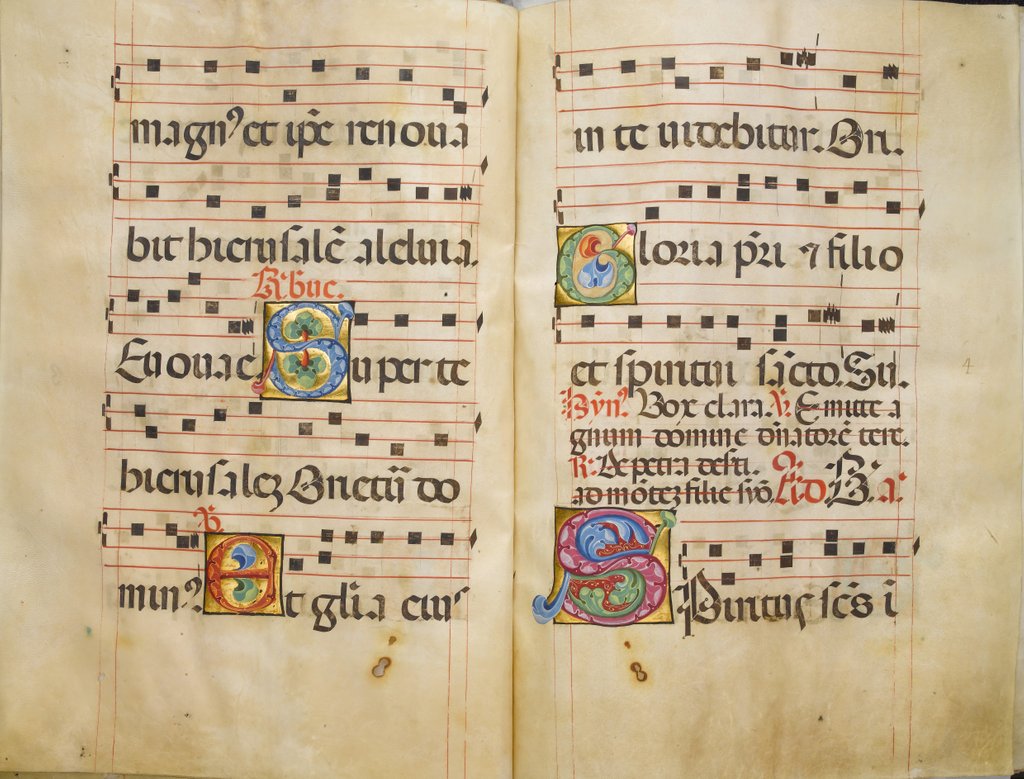 magnꝰ et ip̄e renoua
bit hierusalē alleluia.
R̃. breue.
Euouae Super te
hierusalez Orietũ do
℣.
minꝰ. Et gl̄ia eiuſ
in te uidebitur. Ori.
Gloria p̄ri ⁊ filio
et spiritui sācto. Su.
Hỹnꝰ. Vox clara. ℣. Emitte a
gnum domine d̄natorē terre.
R̃. De petra deserti.
ad mōtez filie syō. Ad B. a.
Spiritus sc̄s ī
4